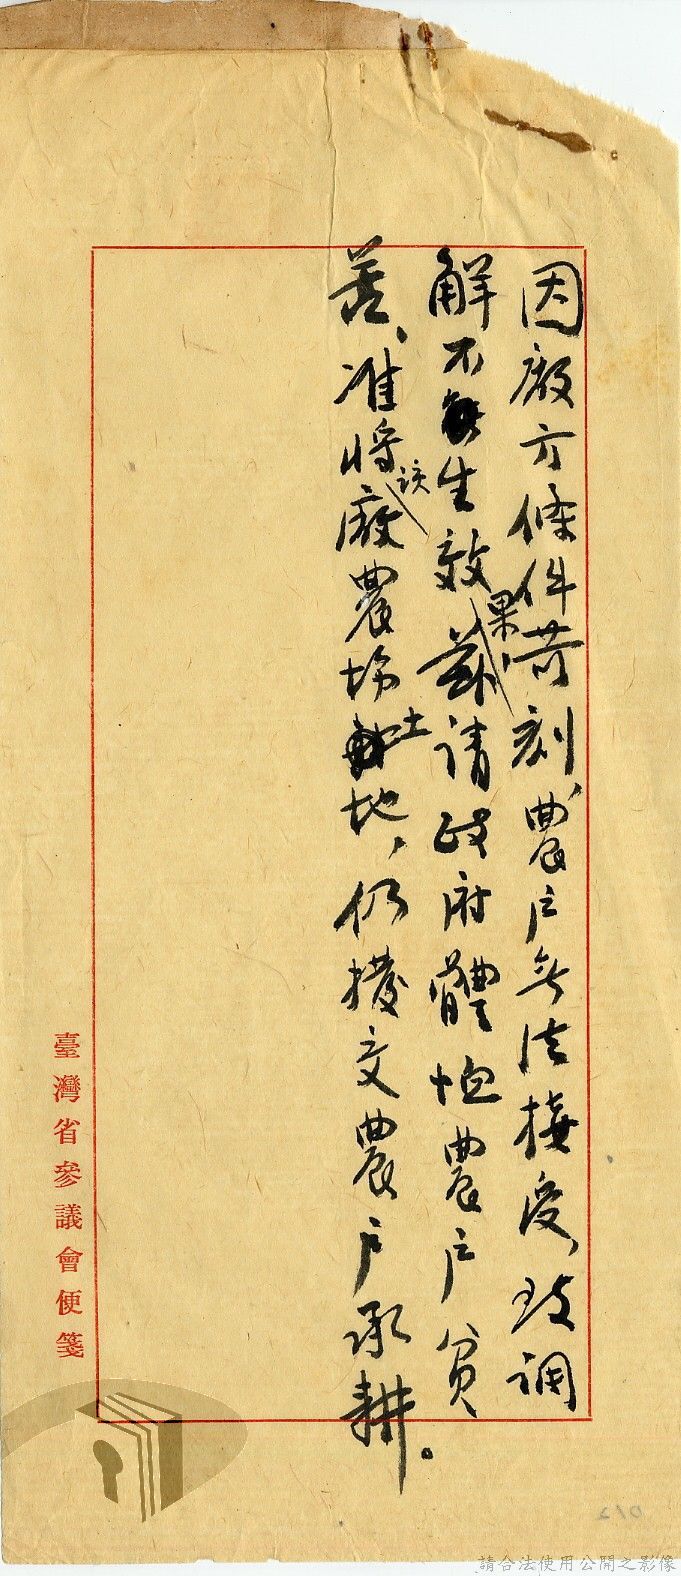 因廠方條件苛刻，農戶無法接受，致調
解不能生效果，茲請政府體恤農戶貧
苦、准將該廠農場土地，仍撥交農戶承耕。
臺灣省參議會便箋
請合法使用公開之影像